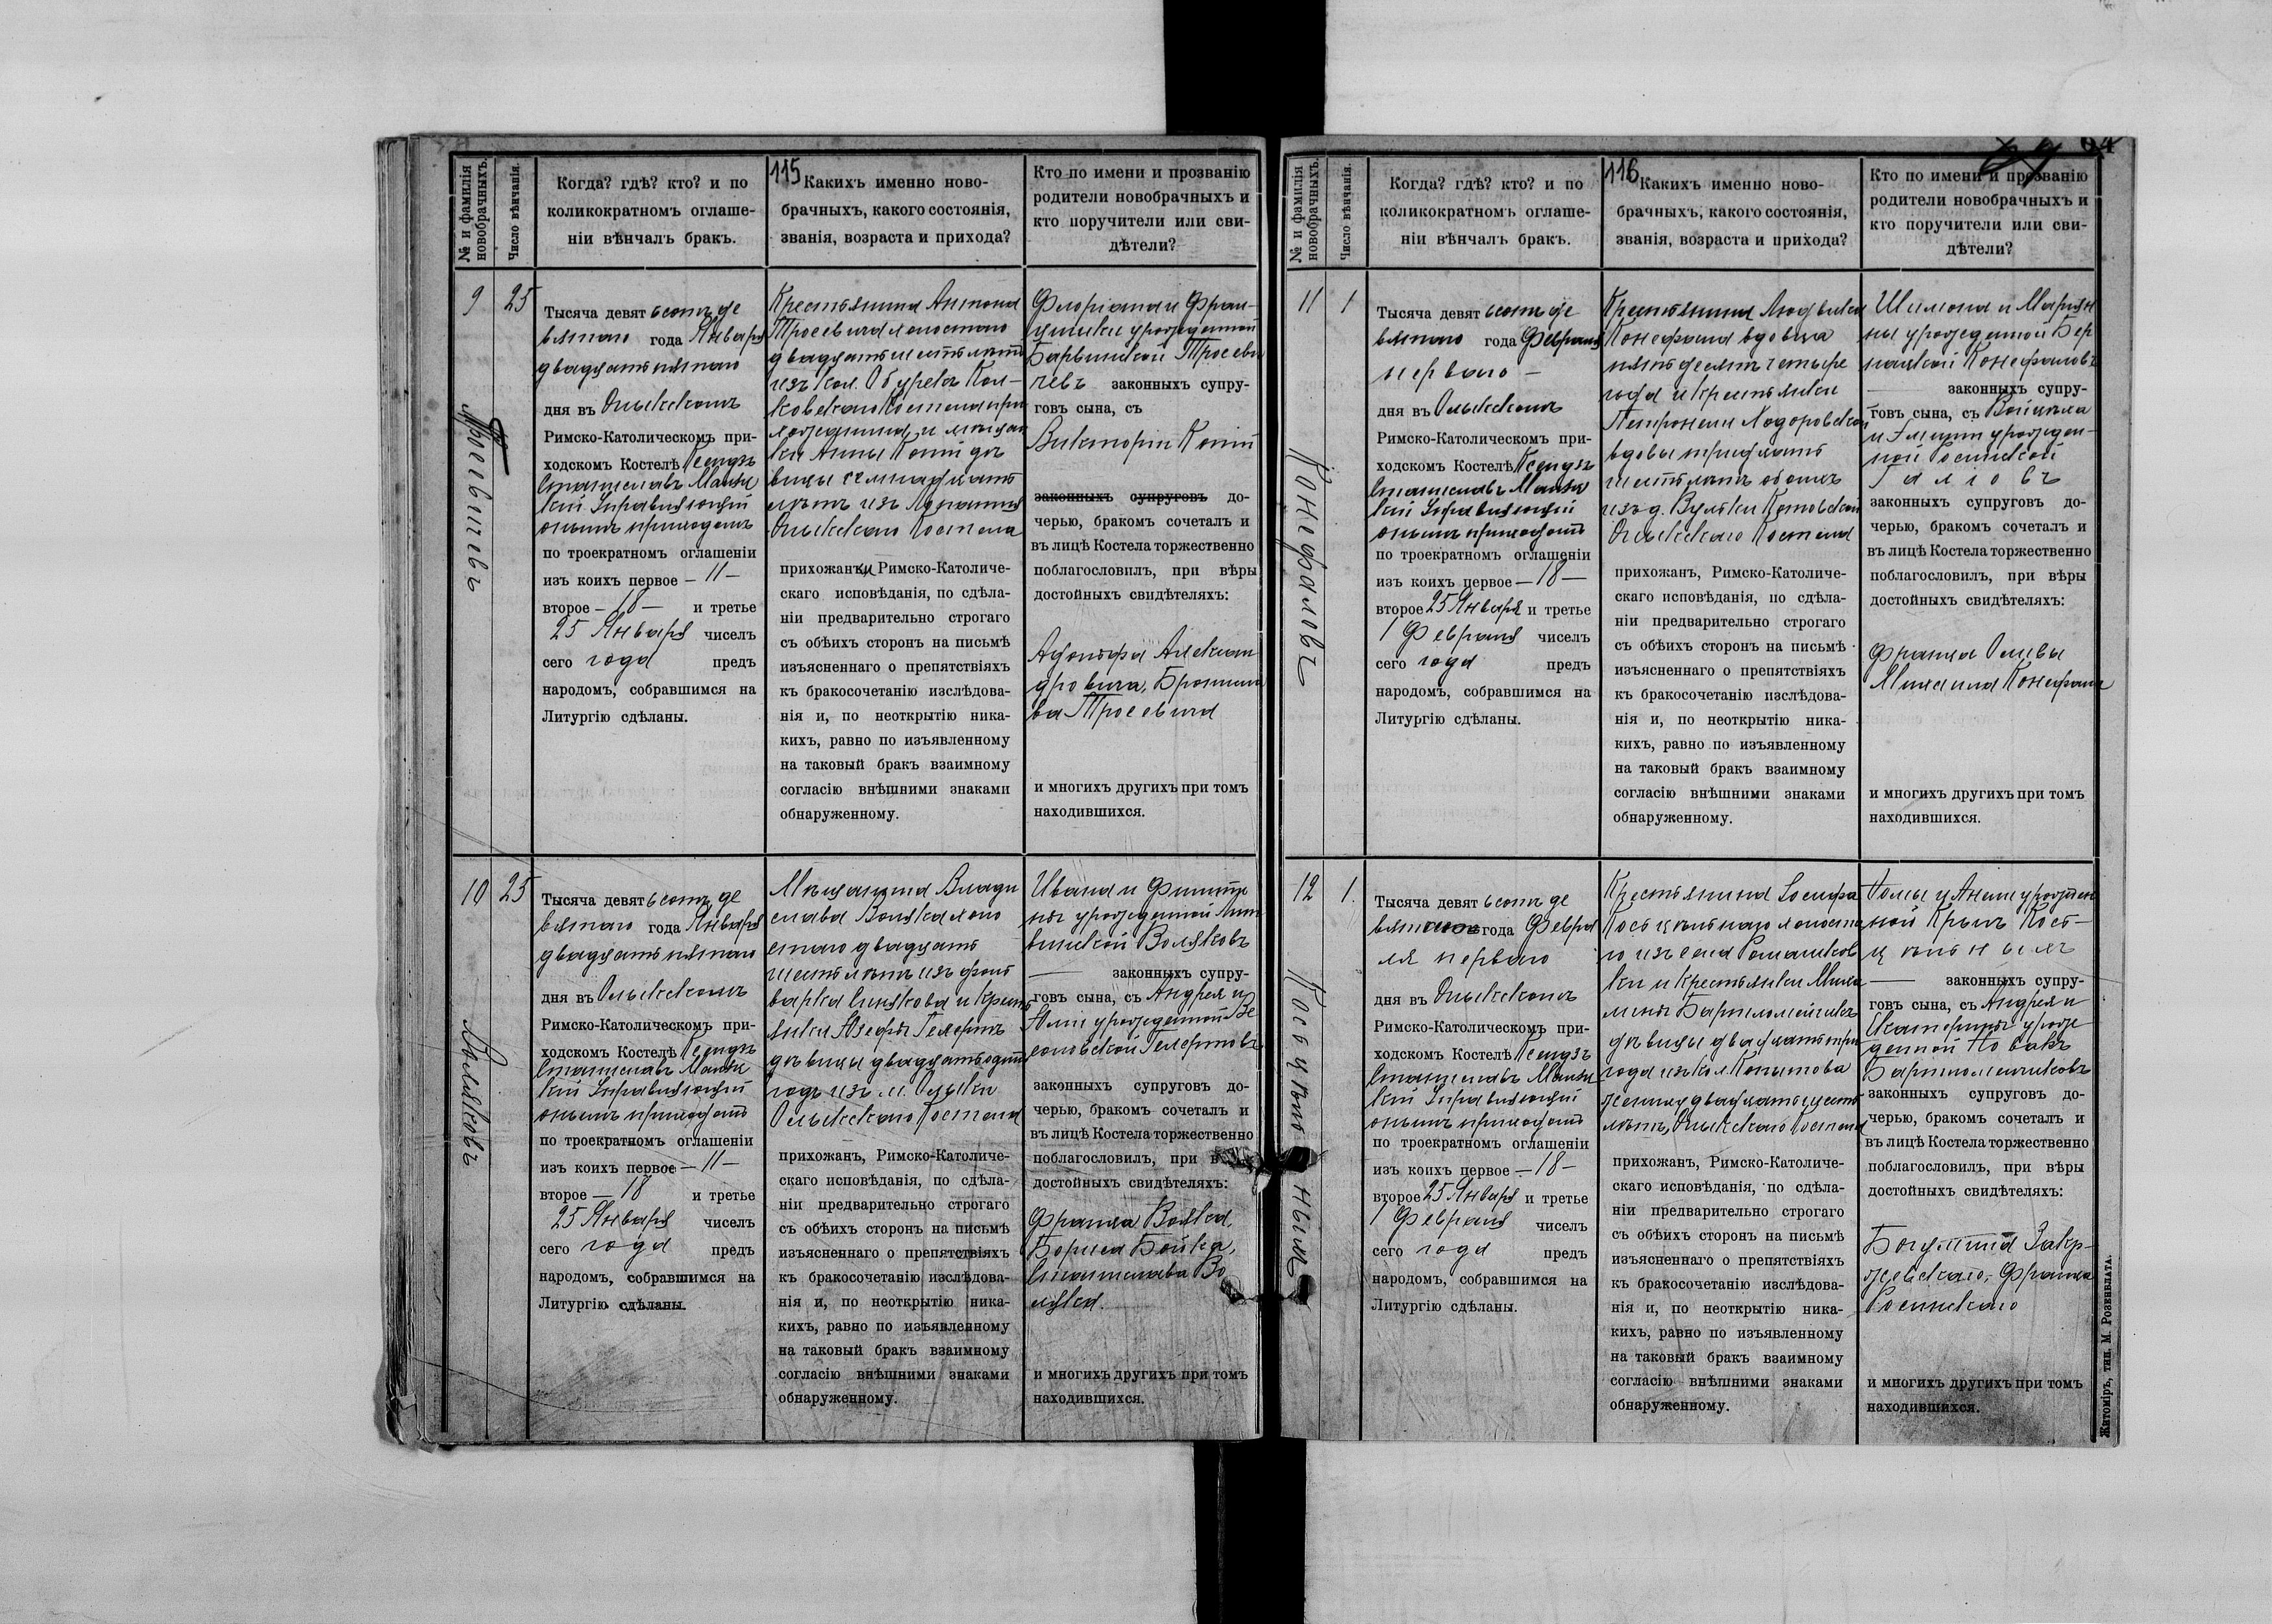 115
№ и фамилія
новобрачныхъ.
Число вѣнчанія.
Когда? гдѣ? кто? и по
коликократномъ оглаше-
ніи вѣнчалъ бракъ.
Какихъ именно ново-
брачныхъ, какого состоянія,
званія, возраста и прихода?
Кто по имени и прозванію
родители новобрачныхъ и
кто поручители или сви-
дѣтели?
9
Тросевичевъ
25
Тысяча девятьсотъ де
вятаго года Января
двадцать пятаго
дня въ Олыкскомъ
Римско-Католическомъ при-
ходскомъ Костелѣ Ксендзъ
Станиславъ
кій Управляющій
онымъ приходомъ
по троекратномъ оглашеніи
изъ коихъ первое – 11 –
второе – 18 – и третье
25 Января чиселъ
сего года предъ
народомъ, собравшимся на
Литургію сдѣланы.
Крестьянина Антона
Тросевича холостаго
двадцать шесть лѣтъ
изъ кол. Кол-
ковскаго Костела при
хожанина, и мѣщан
ки Анны Копій дѣ
вицы семнадцать
лѣтъ изъ
Олыкскаго Костела
прихожанъ, Римско-Католиче-
скаго исповѣданія, по сдѣла-
ніи предварительно строгаго
съ обѣихъ сторонъ на письмѣ
изъясненнаго о препятствіяхъ
къ бракосочетанію изслѣдова-
нія и, по неоткрытію ника-
кихъ, равно по изъявленному
на таковый бракъ взаимному
согласію внѣшними знаками
обнаруженному.
Флоріана и Фран-
цишки урожденной
Барвинской Тросеви
чевъ законныхъ супру-
говъ сына, съ
Викторіи Копій
законныхъ супруговъ до-
черью, бракомъ сочеталъ и
въ лицѣ Костела торжественно
поблагословилъ, при вѣры
достойныхъ свидѣтеляхъ:
Адольфа Алексан
дровича, Бронисла
ва Тросевича
и многихъ другихъ при томъ
находившихся.
10
Воляковъ
25
Тысяча девятьсотъ де
вятаго года Января
двадцать пятаго
дня въ Олыкскомъ
Римско-Католическомъ при-
ходскомъ Костелѣ Ксендзъ
Станиславъ
кій Управляющій
онымъ приходомъ
по троекратномъ оглашеніи
изъ коихъ первое – 11 –
второе – 18 и третье
25 Января чиселъ
сего года предъ
народомъ, собравшимся на
Литургію сдѣланы.
Мѣщанина Влади
слава Воляка холо
стаго двадцать
шесть лѣтъ изъ фоль
варка Синякова и крест
янки Юзефы Гелертъ
дѣвицы двадцать одинъ
годъ изъ м. Олыки
Олыкскаго Костела
прихожанъ, Римско-Католиче-
скаго исповѣданія, по сдѣла-
ніи предварительно строгаго
съ обѣихъ сторонъ на письмѣ
изъясненнаго о препятствіяхъ
къ бракосочетанію изслѣдова-
нія и, по неоткрытію ника-
кихъ, равно по изъявленному
на таковый бракъ взаимному
согласію внѣшними знаками
обнаруженному.
Ивана и
урожденной
Воляковъ
законныхъ супру-
говъ сына, съ Андрея и
Юліи урожденной Ве
соловской Гелертовъ
законныхъ супруговъ до-
черью, бракомъ сочеталъ и
въ лицѣ Костела торжественно
поблагословилъ, при
достойныхъ свидѣтеляхъ:
Франца Воляка,
Бориса Бойка,
Станислава Во
ляка.
и многихъ другихъ при томъ
находившихся.
116
№ и фамилія
новобрачныхъ.
Число вѣнчанія.
Когда? гдѣ? кто? и по
коликократномъ оглаше-
ніи вѣнчалъ бракъ.
Какихъ именно ново-
брачныхъ, какого состоянія,
званія, возраста и прихода?
Кто по имени и прозванію
родители новобрачныхъ и
кто поручители или сви-
дѣтели?
11
Конефаловъ
1
Тысяча девятьсотъ де
вятаго года Февраля
перваго –
дня въ Олыкскомъ
Римско-Католическомъ при-
ходскомъ Костелѣ Ксендзъ
Станиславъ
кій Управляющій
онымъ приходомъ
по троекратномъ оглашеніи
изъ коихъ первое – 18 –
второе 25 Января и третье
1 Февраля чиселъ
сего года предъ
народомъ, собравшимся на
Литургію сдѣланы.
Крестьянина Людвика
Конефала вдовца
пятьдесятъ четыре
года и крестьянки
Петронели Ходоровской
вдовы тридцать
шесть лѣтъ обоихъ
изъ д. Вульки Котовской
Олыкскаго Костела
прихожанъ, Римско-Католиче-
скаго исповѣданія, по сдѣла-
ніи предварительно строгаго
съ обѣихъ сторонъ на письмѣ
изъясненнаго о препятствіяхъ
къ бракосочетанію изслѣдова-
нія и, по неоткрытію ника-
кихъ, равно по изъявленному
на таковый бракъ взаимному
согласію внѣшними знаками
обнаруженному.
Шимона и Маріан
ны урожденной Бер
нацкой Конефаловъ
законныхъ супру-
говъ сына, съ Войцѣха
и урожден-
ной Росинской
законныхъ супруговъ до-
черью, бракомъ сочеталъ и
въ лицѣ Костела торжественно
поблагословилъ, при вѣры
достойныхъ свидѣтеляхъ:
Франца Оливы
Михаила Конефала
и многихъ другихъ при томъ
находившихся.
12
Косьцѣльныхъ
1.
Тысяча девятьсотъ де
вятаго года Февра
ля перваго
дня въ Олыкскомъ
Римско-Католическомъ при-
ходскомъ Костелѣ Ксендзъ
Станиславъ
кій Управляющій
онымъ приходомъ
по троекратномъ оглашеніи
изъ коихъ первое – 18 –
второе 25 Января и третье
1 Февраля чиселъ
сего года предъ
народомъ, собравшимся на
Литургію сдѣланы.
Крестьянина Іосифа
Косьцѣльнаго холоста
го изъ села Ромашков
ки и крестьянки
дѣвицы двадцать три
года изъ кол. Копытова
жениху двадцать шесть
лѣтъ, Олыкскаго Костела
прихожанъ, Римско-Католиче-
скаго исповѣданія, по сдѣла-
ніи предварительно строгаго
съ обѣихъ сторонъ на письмѣ
изъясненнаго о препятствіяхъ
къ бракосочетанію изслѣдова-
нія и, по неоткрытію ника-
кихъ, равно по изъявленному
на таковый бракъ взаимному
согласію внѣшними знаками
обнаруженному.
Томы и урожден
ной Крыль Кось-
цѣльныхъ
законныхъ супру-
говъ сына, съ Андрея и
Екатерины урож
денной Новакъ
законныхъ супруговъ до-
черью, бракомъ сочеталъ и
въ лицѣ Костела торжественно
поблагословилъ, при вѣры
достойныхъ свидѣтеляхъ:
Закр-
жевскаго, Франца
Росинскаго
и многихъ другихъ при томъ
находившихся.
Житоміръ, тип. М. Розенблата.